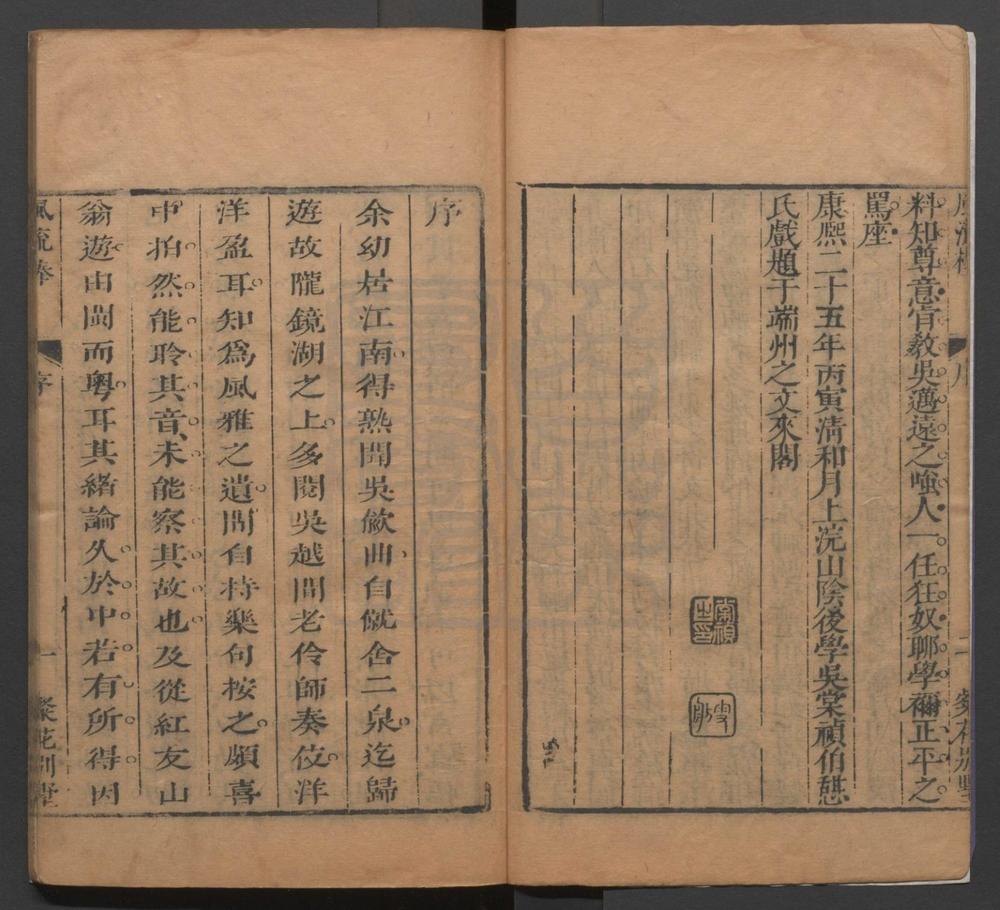 料知尊意肯教吳邁遠之嗤人一任狂奴聊學禰正平之
罵座
康熙二十五年丙寅清和月上浣山陰後學吳棠禎伯憩
氏戲題于端州之文來閣
棠禎之印
序
余幼居江南得熟聞吳歈曲自僦舍二泉迄歸
遊故隴鏡湖之上多閱吳越間老伶師奏伎洋
洋盈耳知爲風雅之遺間自持樂句按之頗喜
中拍然能聆其音未能察其故也及從紅友山
翁遊由閩而粵耳其緒論久於中若有所得因
風流棒 序 一 粲花別墅